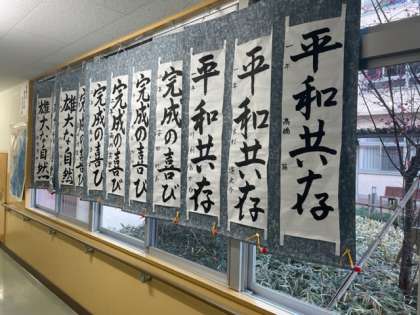 平和共存
平和共存
平和共存
完成の喜び
完成の喜び
完成の喜び
完成の喜び
完成の喜び
雄大な自然
雄大な自然